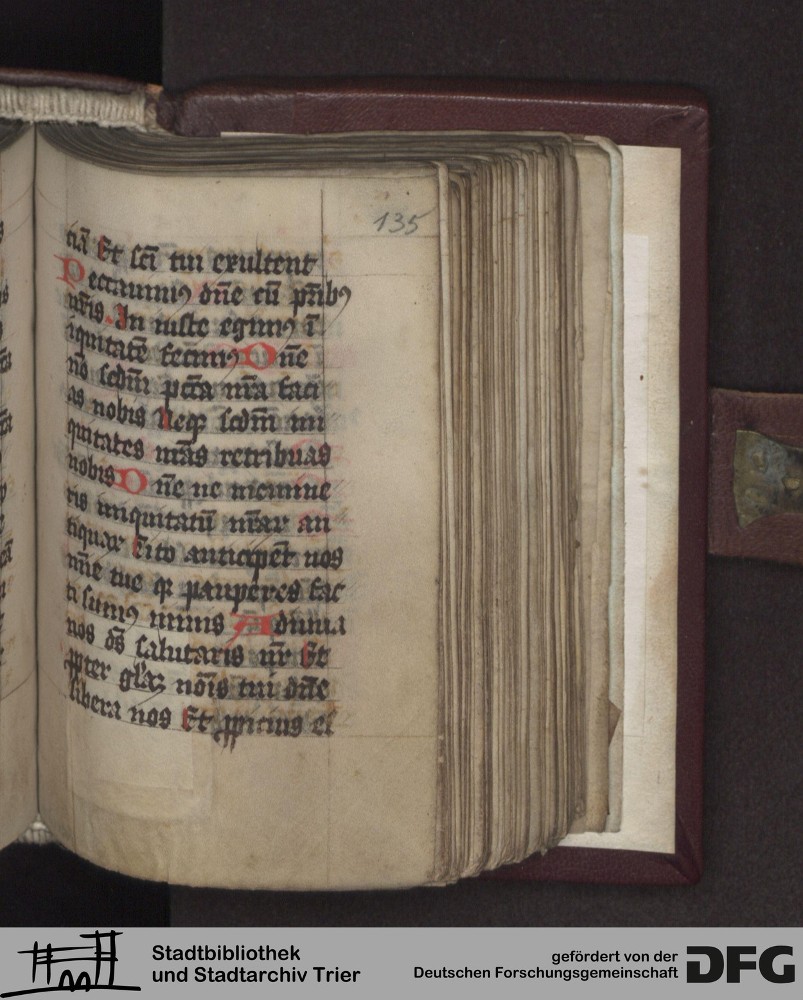 135
ciā Et scī tui exultent
Peccauimꝰ dn̄e cū pr̄ibꝰ
nr̄is In iuste egimꝰ ī
iquitatē fecimꝰ One
nō scdm̄ pccā nr̄a faci
as nobis Neqꝫ scdm̄ ini
quitates nr̄as retribuas
nobis One ne memine
ris iniquitatū nr̄ar an
tiquar Cito anticipēt nos
mīe tue qꝫ pauperes fac
ti sumꝰ nimis Adiuua
nos ds̄ salutaris nr̄ Et
ꝓpter glaꝫ nōīs tui dn̄e
libera nos Et ꝓpicius es
Stadtbibliothek
und Stadtarchiv Trier
gefördert von der
Deutschen Forschungsgemeinschaft
DFG